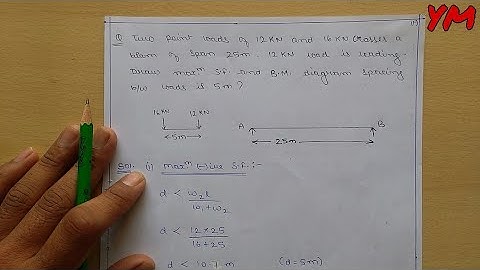 YM
Q Two point loads of 12KN and 16KN crosses a
beam of span 25m. 12KN load is leading.
Draw max^m S.F. and B.M. diagram spacing
b/w loads is 5m?
16KN 12KN
5m
A B
25m
Sol. (i) max^m -sive S.F. :-
d < w₂ l / w₁+w₂
d < 12×25 / 16+25
d < 10.7 m (d=5m)